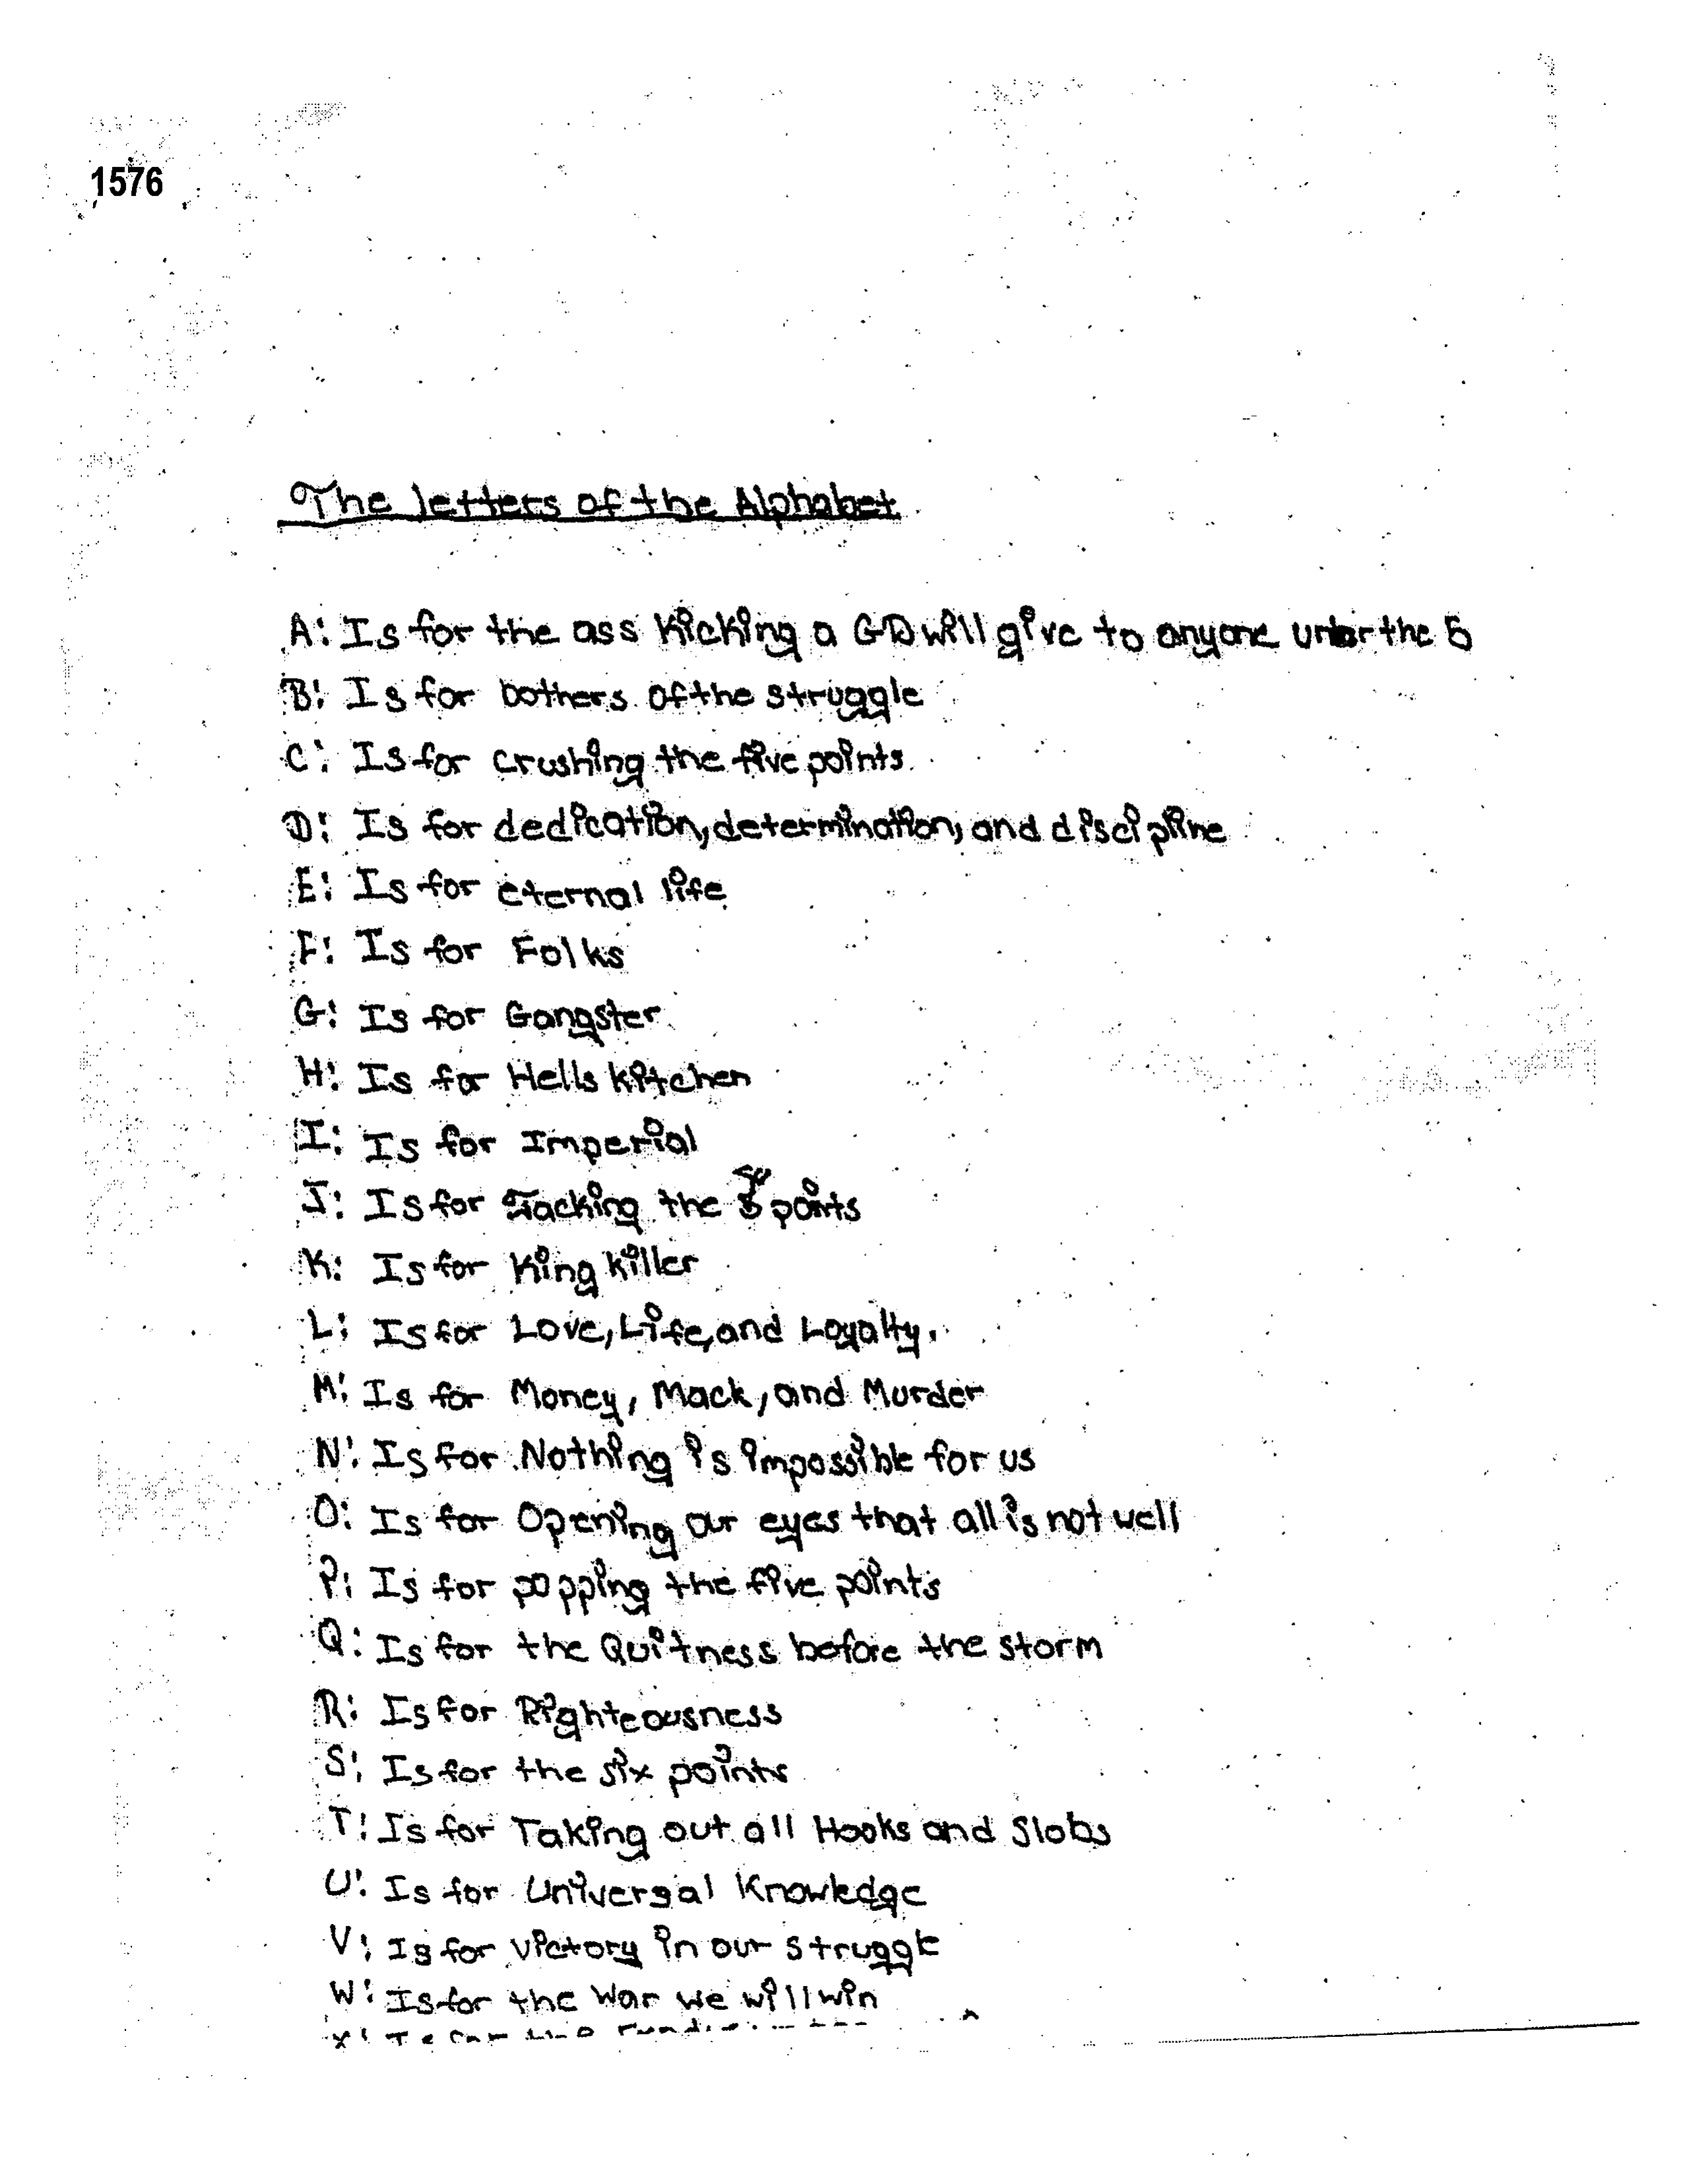 1576
The letters of the Alphabet
A: Is for the ass kicking a GD will give to anyone under the 5
B: Is for bothers of the struggle
C: Is for crushing the five points.
D: Is for dedication, determination, and discipline
E: Is for eternal life
F: Is for Folks
G: Is for Gangster
H: Is for Hells kitchen
I: Is for Imperial
J: Is for Jacking the 5 points
K: Is for King killer
L: Is for Love, Life, and Loyalty.
M: Is for Money, Mack, and Murder
N: Is for Nothing is impossible for us
O: Is for Opening our eyes that all is not well
P: Is for popping the five points
Q: Is for the Quitness before the storm
R: Is for Righteousness
S: Is for the six points
T: Is for Taking out all Hooks and Slobs
U: Is for Universal Knowledge
V: Is for victory in our struggle
W: Is for the War we will win
X: Is for the